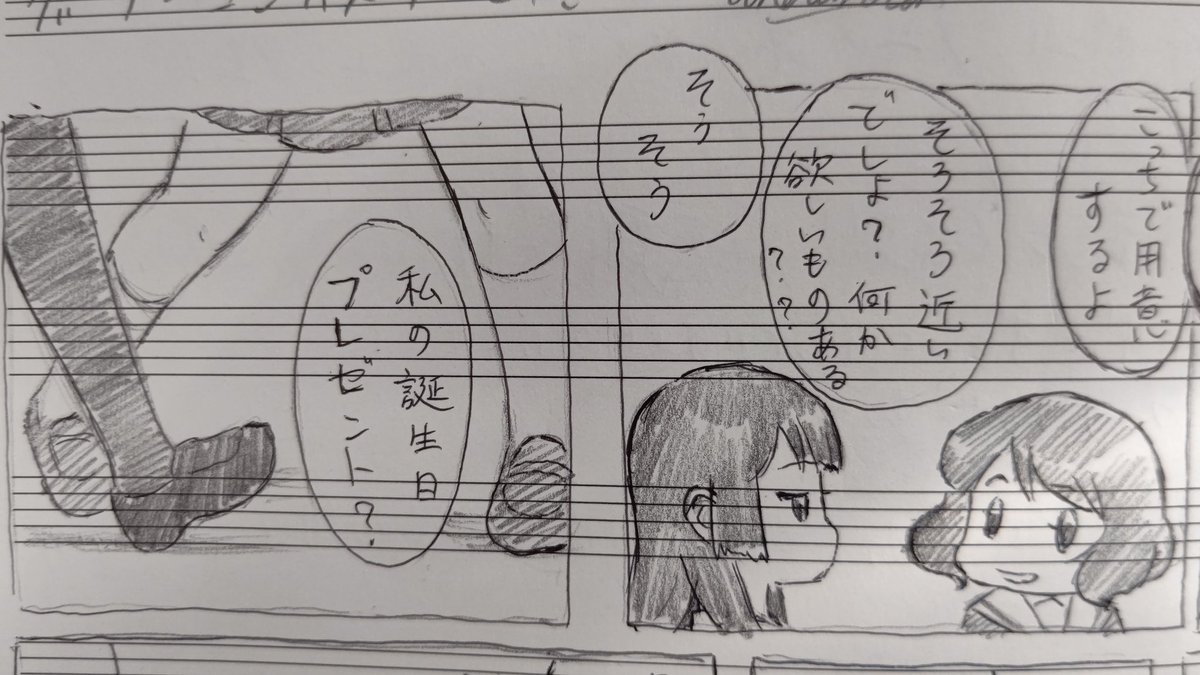 こっちで用意
するよ
そろそろ近い
でしょ？何か
欲しいものある
？？
そう
そう
私の誕生日
プレゼント？